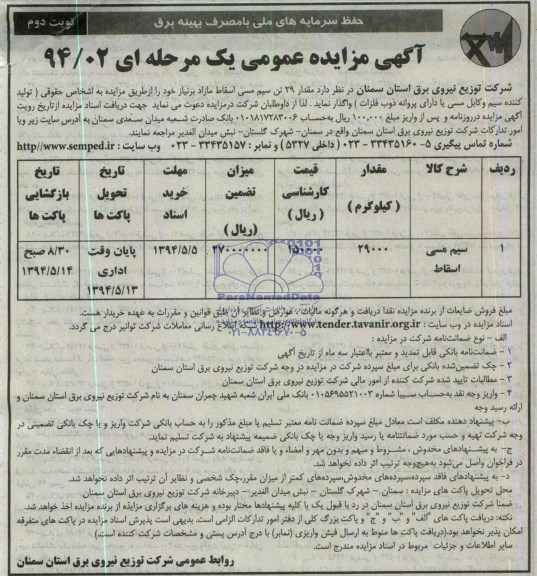 حفظ سرمایه های ملی با مصرف بهینه برق
نوبت دوم
آگهی مزایده عمومی یک مرحله ای ۹۴/۰۲
شرکت توزیع نیروی برق استان سمنان در نظر دارد مقدار ۲۹ تن سیم مسی اسقاط مازاد برنیاز خود را ازطریق مزایده به اشخاص حقوقی ( تولید
کننده سیم وکابل مسی یا دارای پروانه ذوب فلزات ) واگذار نماید . لذا از داوطلبان شرکت درمزایده دعوت می نماید جهت دریافت اسناد مزایده ازتاریخ رویت
آگهی مزایده درروزنامه و پس از واریز مبلغ ۱۰۰,۰۰۰ ریال به‌حساب ۰۱۰۱۸۱۷۲۸۳۰۰۶ بانک صادرات شعبه میدان سعدی سمنان به آدرس سایت زیر ویا
امور تدارکات شرکت توزیع نیروی برق استان سمنان واقع در سمنان– شهرک گلستان– نبش میدان الغدیر مراجعه نمایند.
شماره تماس پیگیری ۵- ۳۳۴۳۵۱۶۰ - ۰۲۳ ( داخلی ۵۳۲۷ ) و نمابر : ۳۳۴۳۵۱۵۷ - ۰۲۳ وب سایت : http//www.semped.ir
ردیف
شرح کالا
مقدار ( کیلوگرم )
قیمت کارشناسی ( ریال )
میزان تضمین (ریال)
مهلت خرید اسناد
تاریخ تحویل پاکت ها
تاریخ بازگشایی پاکت ها
۱
سیم مسی اسقاط
۲۹۰۰۰
۲۷۰۰۰۰۰۰۰
۱۳۹۴/۵/۵
پایان وقت اداری ۱۳۹۴/۵/۱۳
۸/۳۰ صبح ۱۳۹۴/۵/۱۴
ParsNamadData
۰۲۱-۸۸۳۴۹۶۷۰-۵
مبلغ فروش ضایعات از برنده مزایده نقدا دریافت و هرگونه مالیات ، عوارض ونظایر آن طبق قوانین و مقررات به عهده خریدار هست.
اسناد مزایده در وب سایت : http://www.tender.tavanir.org.ir شبکه اطلاع رسانی معاملات شرکت توانیر درج می گردد.
الف – نوع ضمانت‌نامه شرکت در مزایده :
۱ – ضمانت‌نامه بانکی قابل تمدید و معتبر بااعتبار سه ماه از تاریخ آگهی
۲ – چک تضمین‌شده بانکی برای مبلغ سپرده شرکت در مزایده در وجه شرکت توزیع نیروی برق استان سمنان
۳ – مطالبات تایید شده شرکت کننده از امور مالی شرکت توزیع نیروی برق استان سمنان
۴ – واریز وجه نقد به‌حساب سیبا شماره ۰۱۰۵۶۹۵۵۲۱۰۰۳ بانک ملی ایران شعبه شهید چمران سمنان به نام شرکت توزیع نیروی برق استان سمنان و
ارائه رسید وجه
ب- پیشنهاد دهنده مکلف است معادل مبلغ سپرده ضمانت نامه معتبر تسلیم یا مبلغ مذکور را به حساب بانکی شرکت واریز و یا چک بانکی تضمینی در
وجه شرکت تهیه و حسب مورد ضمانتنامه یا رسید واریز وجه یا چک بانکی ضمیمه پیشنهاد به شرکت تسلیم نماید.
ج- به پیشنهادهای مخدوش ، مشروط و مبهم و بدون مهر و امضاء و یا فاقد ضمانت‌نامه شرکت در مزایده و پیشنهادهایی که بعد از انقضاء مدت مقرر
در فراخوان واصل می‌شود به‌هیچ‌وجه ترتیب اثر داده نخواهد شد.
د- به پیشنهادهای فاقد سپرده،سپرده‌های مخدوش،سپرده‌های کمتر از میزان مقرر،چک شخصی و نظایر آن ترتیب اثر داده نخواهد شد.
محل تحویل پاکت های مزایده : سمنان – شهرک گلستان – نبش میدان الغدیر– دبیرخانه شرکت توزیع نیروی برق استان سمنان
ضمنا شرکت توزیع نیروی برق استان سمنان در رد یا قبول یک یا کلیه پیشنهادها مختار بوده و هزینه های برگزاری مزایده از برنده مزایده اخذ خواهد شد.
نکته: دریافت پاکت های "الف" و "ب" و "ج" و پاکت بزرگ کلی از دفتر امور تدارکات الزامی است. بدیهی است پذیرش اسناد مزایده در پاکت های متفرقه
امکان پذیر نخواهد بود(دریافت پاکت ها منوط به ارسال فیش واریزی (نمابر) با درج آدرس پستی و مشخصات شرکت کننده است.)
سایر اطلاعات و جزئیات مربوط در اسناد مزایده مندرج است.
روابط عمومی شرکت توزیع نیروی برق استان سمنان